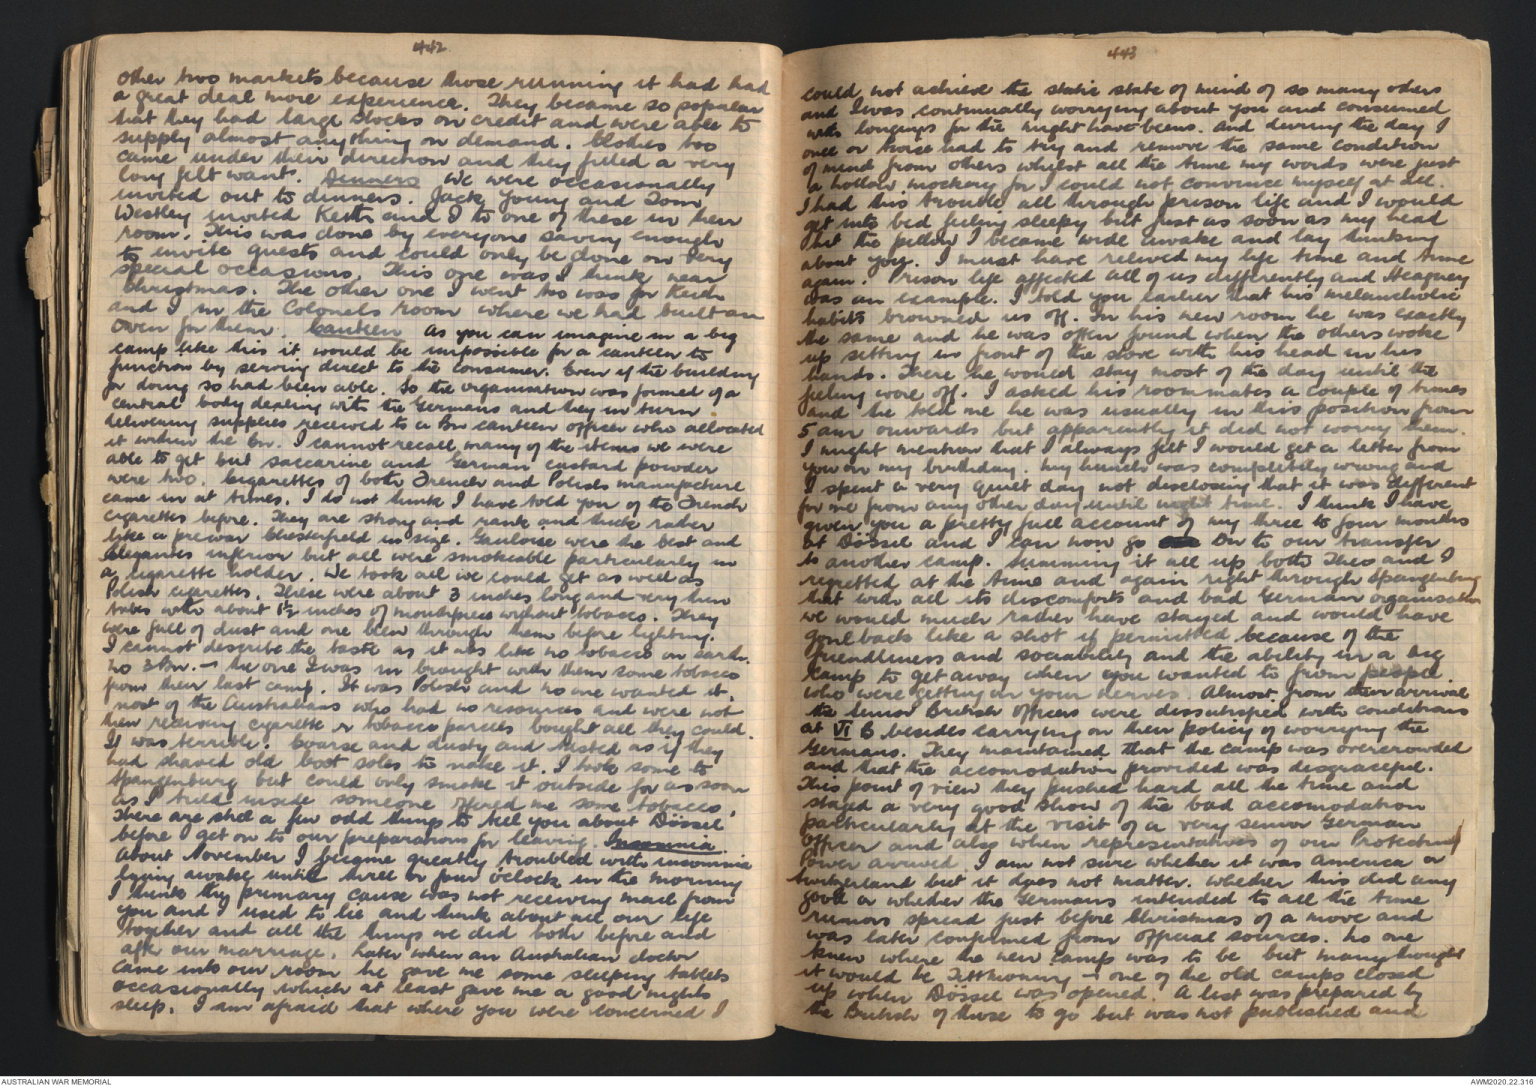 442
other two markets because those running it had had
a great deal more experience. They became so popular
that they had large stocks on credit and were able to
supply almost anything on demand. Clothes too
came under their direction and they filled a very
long felt want. Dinners We were occasionally
invited out to dinners. Jack Young and Tom
Westley invited Keith and I to one of these in their
room. This was done by everyone saving enough
to invite guests and could only be done on very
special occasions. This one was I think near
Christmas. The other one I went too was for Keith
and I in the Colonels room where we had built an
oven for them. Canteen As you can imagine in a big
camp like this it would be impossible for a canteen to
function by serving direct to the consumer. Even if the building
for doing so had been able. So the organisation was formed of a
central body dealing with the Germans and they in turn
delivering supplies received to a Bn canteen officer who allocated
it within the Bn. I cannot recall many of the items we were
able to get but saccarine and German custard powder
were two. Cigarettes of both French and Polish manufacture
came in at times. I do not think I have told you of the French
cigarettes before. They are strong and rank and thick rather
like a prewar Chesterfield in size. Gauloise were the best and
Elegantes inferior but all were smokeable particularly in
a cigarette holder. We took all we could get as well as
Polish cigarettes. These were about 3 inches long and very thin
tubes with about 1½ inches of mouthpiece without tobacco. They
were full of dust and one blew through them before lighting.
I cannot describe the taste as it was like no tobacco on earth.
No 3 Bn. - the one I was in brought with them some tobacco
from their last camp. It was Polish and no one wanted it.
Most of the Australians who had no resources and were not
then receiving cigarette or tobacco parcels bought all they could.
It was terrible. Coarse and dusty and tasted as if they
had shaved old boot soles to make it. I took some to
Spangenburg but could only smoke it outside for as soon
as I tried inside someone offered me some tobacco.
There are still a few odd things to tell you about Dössel
before I get on to our preparations for leaving. Insomnia.
About November I became greatly troubled with insomnia
lying awake until three or four oclock in the morning
I think the primary cause was not receiving mail from
you and I used to lie and think about all our life
together and all the things we did both before and
after our marriage. Later when an Australian doctor
came into our room he gave me some sleeping tablets
occasionally which at least gave me a good nights
sleep. I am afraid that where you were concerned I
443
could not achieve the static state of mind of so many others
and I was continually worrying about you and consumed
with longings for the might have beens. And during the day I
once or twice had to try and remove the same condition
of mind from others whilst all the time my words were just
a hollow mockery for I could not convince myself at all.
I had this trouble all through prison life and I would
get into bed feeling sleepy but just as soon as my head
hit the pillow I became wide awake and lay thinking
about you. I must have relived my life time and time
again. Prison life affected all of us differently and Heagney
was an example. I told you earlier that his melancholic
habits browned us off. In his new room he was exactly
the same and he was often found when the others woke
up sitting in front of the stove with his head in his
hands. There he would stay most of the day until the
feeling wore off. I asked his roommates a couple of times
and the told me he was usually in this position from
5 am onwards but apparently it did not worry them.
I might mention that I always felt I would get a letter from
you on my birthday. My hunch was completely wrong and
I spent a very quiet day not disclosing that it was different
for me from any other day until night time. I think I have
given you a pretty full account of my three to four months
at Dössel and I can now go on to our transfer
to another camp. Summing it all up both Theo and I
regretted at the time and again right through Spangenburg
that with all its discomforts and bad German organisation
we would much rather have stayed and would have
gone back like a shot if permitted because of the
friendliness and sociability and the ability in a big
camp to get away when you wanted to from people
who were getting on your nerves. Almost from their arrival
the Senior British Officers were dissatisfied with conditions
at VI B besides carrying on their policy of worrying the
Germans. They maintained that the camp was overcrowded
and that the accomodation provided was disgraceful.
This point of view they pushed hard all the time and
staged a very good show of the bad accomodation
particularly at the visit of a very senior German
Officer and also when representatives of our Protecting
Power arrived. I am not sure whether it was America or
Switzerland but it does not matter. Whether this did any
good or whether the Germans intended to all the time
rumors spread just before Christmas of a move and
was later confirmed from official sources. No one
knew where the new camp was to be but many thought
it would be Tittmoning - one of the old camps closed
up when Dössel was opened. A list was prepared by
the British of those to go but was not published and
AUSTRALIAN WAR MEMORIAL
AWM2020.22.316